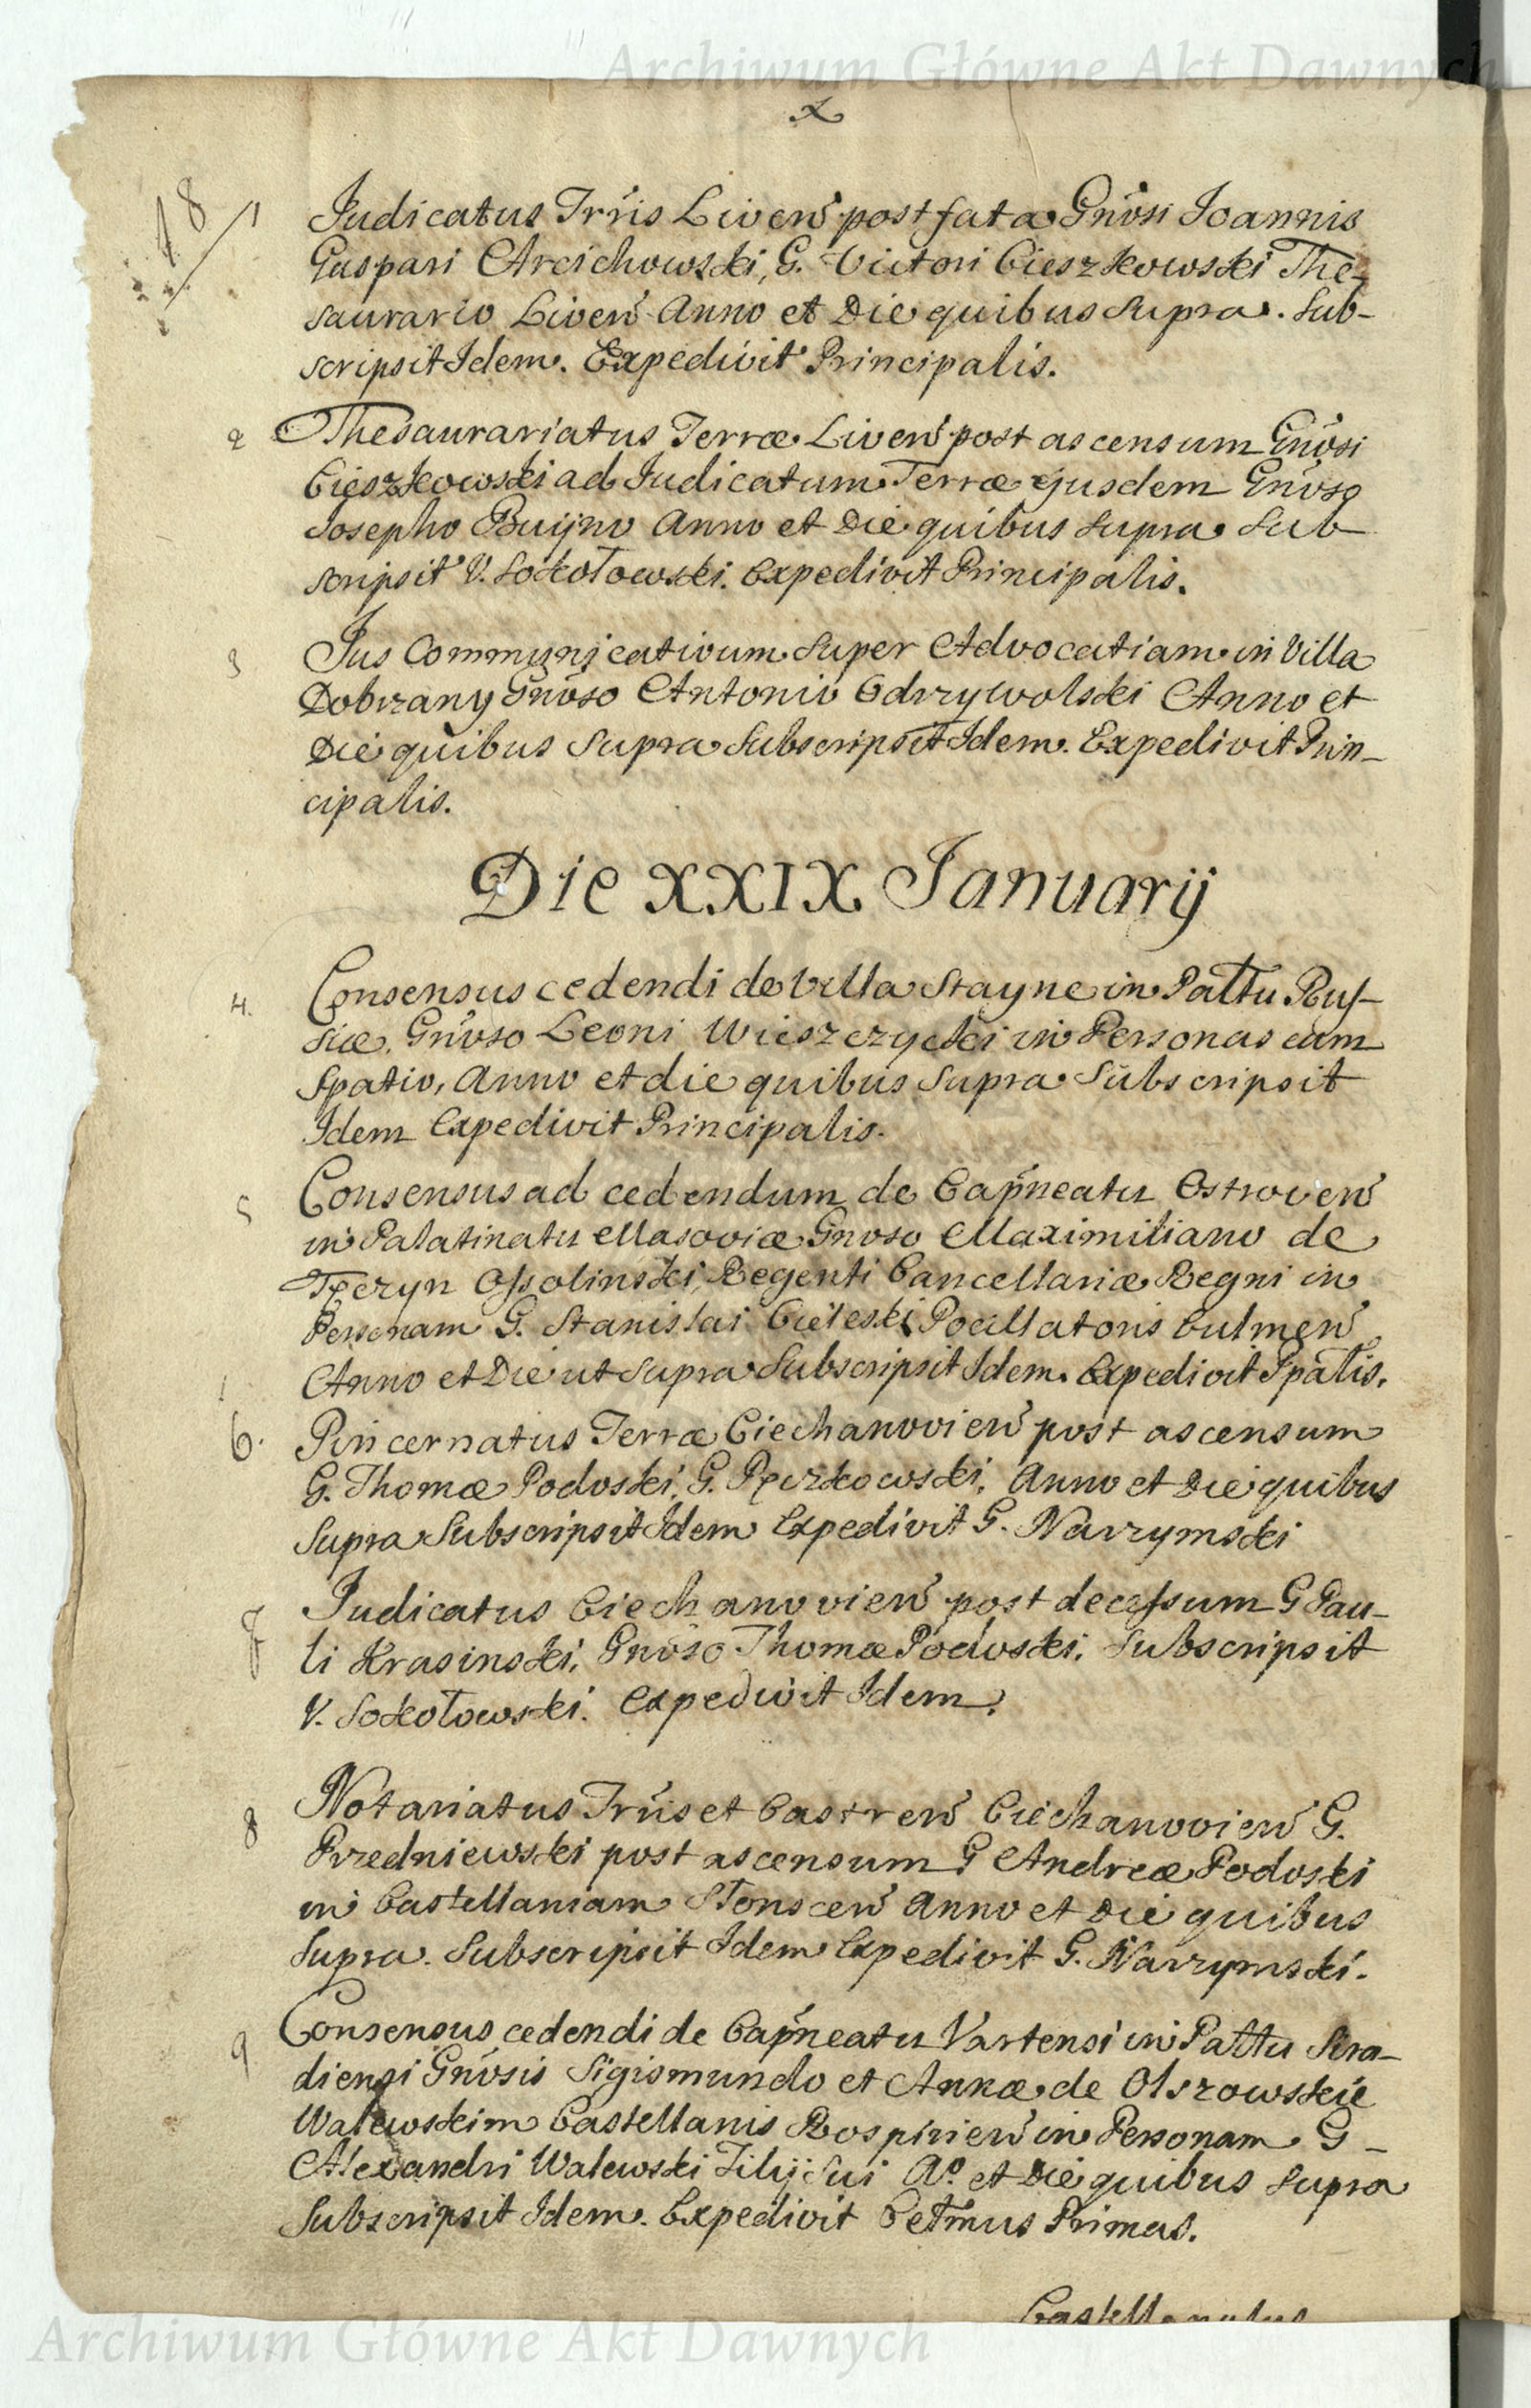 Archiwum Główne Akt Dawnych
x
18
1 Judicatus Trris Liven post fata Gnosi Joannis
Gaspari Arcichowski, G. Victori Cieszkowski The-
saurario Liven Anno et Die quibus supra. Sub-
scripsit Idem. Expedivit Principalis.
2 Thesaurariatus Terræ Liven post ascensum Gnosi
Cieszkowski ad Judicatum Terræ ejusdem Gnoso
Josepho Buijno Anno et Die quibus supra Sub
scripsit V. Sokołowski. Expedivit Principalis.
3 Jus Communicativum super Advocatiam in Villa
Dobrzany Gnoso Antonio Odrzywolski Anno et
Die quibus supra Subscripsit Idem. Expedivit Prin-
cipalis.
Die XXIX Januarij
4. Consensus cedendi de Villa Stayne in Pałtu Rus-
siæ. Gnoso Leoni Wieszczycki in Personas eum
Spatio, Anno et die quibus supra Subscripsit
Idem Expedivit Principalis.
5 Consensus ad cedendum de Capneatu Ostroven
in Palatinatu Masoviæ Gnoso Maximiliano de
Tęczyn Ossolinski, Regenti Cancellariæ Regni in
Personam G. Stanislai Cieleski Pocillatoris Culmen
Anno et Die ut supra Subscripsit Idem. Expedivit Ppalis.
6. Pincernatus Terræ Ciechanovien post ascensum
G. Thomæ Podoski, G. Pęczkowski, Anno et Die quibus
supra Subscripsit Idem Expedivit G. Narzymski
7 Judicatus Ciechanovien post decessum G Pau-
li Krasinski, Gnoso Thomæ Podoski. Subscripsit
V. Sokołowski. Expedivit Idem.
8 Notariatus Trris et Castren Ciechanovien G.
Przedniewski post ascensum G Andreæ Podoski
in Castellaniam Słonscen Anno et Die quibus
supra. Subscripsit Idem Expedivit G. Narzymski.
9 Consensus cedendi de Capneatu Vartensi in Pałtu Sira-
diensi Gnosis Sigismundo et Annæ de Olszowskie
Walewskim Castellanis Rospirien in Personam G -
Alexandri Walewski Filij sui Ao. et Die quibus supra
Subscripsit Idem. Expedivit Celmus Primas.
Castellanatus
Archiwum Główne Akt Dawnych